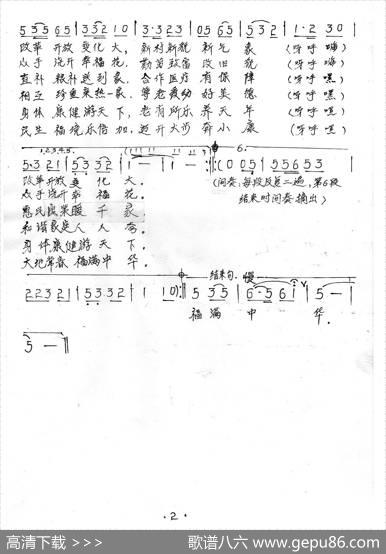 5 3 5 6 5 | 5 3 2 1 0 | 3·3 2 3 | 0 5 6 5 | 5 3 2 | 1·2 3 0 |
改革 开放 变化 大， 新村新貌 新气 象 (呀呼 嗨)
众手 浇开 幸福 花， 勤劳致富 改旧 貌 (呀呼 嗨)
直补 粮补 送到 家， 合作医疗 有保 障 (呀呼 嘿)
相互 珍重 亲热一家， 尊老爱幼 好美德 (呀呼 嘿)
身体 康健游天下， 老有所乐 养天年 (呀呼 嘿)
民生 福境乐倍加， 迈开大步 奔小康 (呀呼 嘿)
1.2.3.4.5.
6.
5·3 2 1 | 5 3 3 2 | 1 — | 1 — :| (0 0 5 | 5 5 6 5 3
改革开放 变 化 大。
(间奏：每段反复二遍，第6段
众手浇开 幸 福 花。
结束时间奏摘出)
惠民政策暖 千 家。
和谐家庭人 人 夸。
身体康健游 天 下。
大地常春福满中 华。
结束句. 慢
2 2 3 2 1 | 5·3 3 2 | 1 1 0) :| 5 3 5 | 6·5 6 1 | 5 — |
福 满 中 华。
5 — ||
·2·
高清下载 >>>
歌谱八六 www.gepu86.com